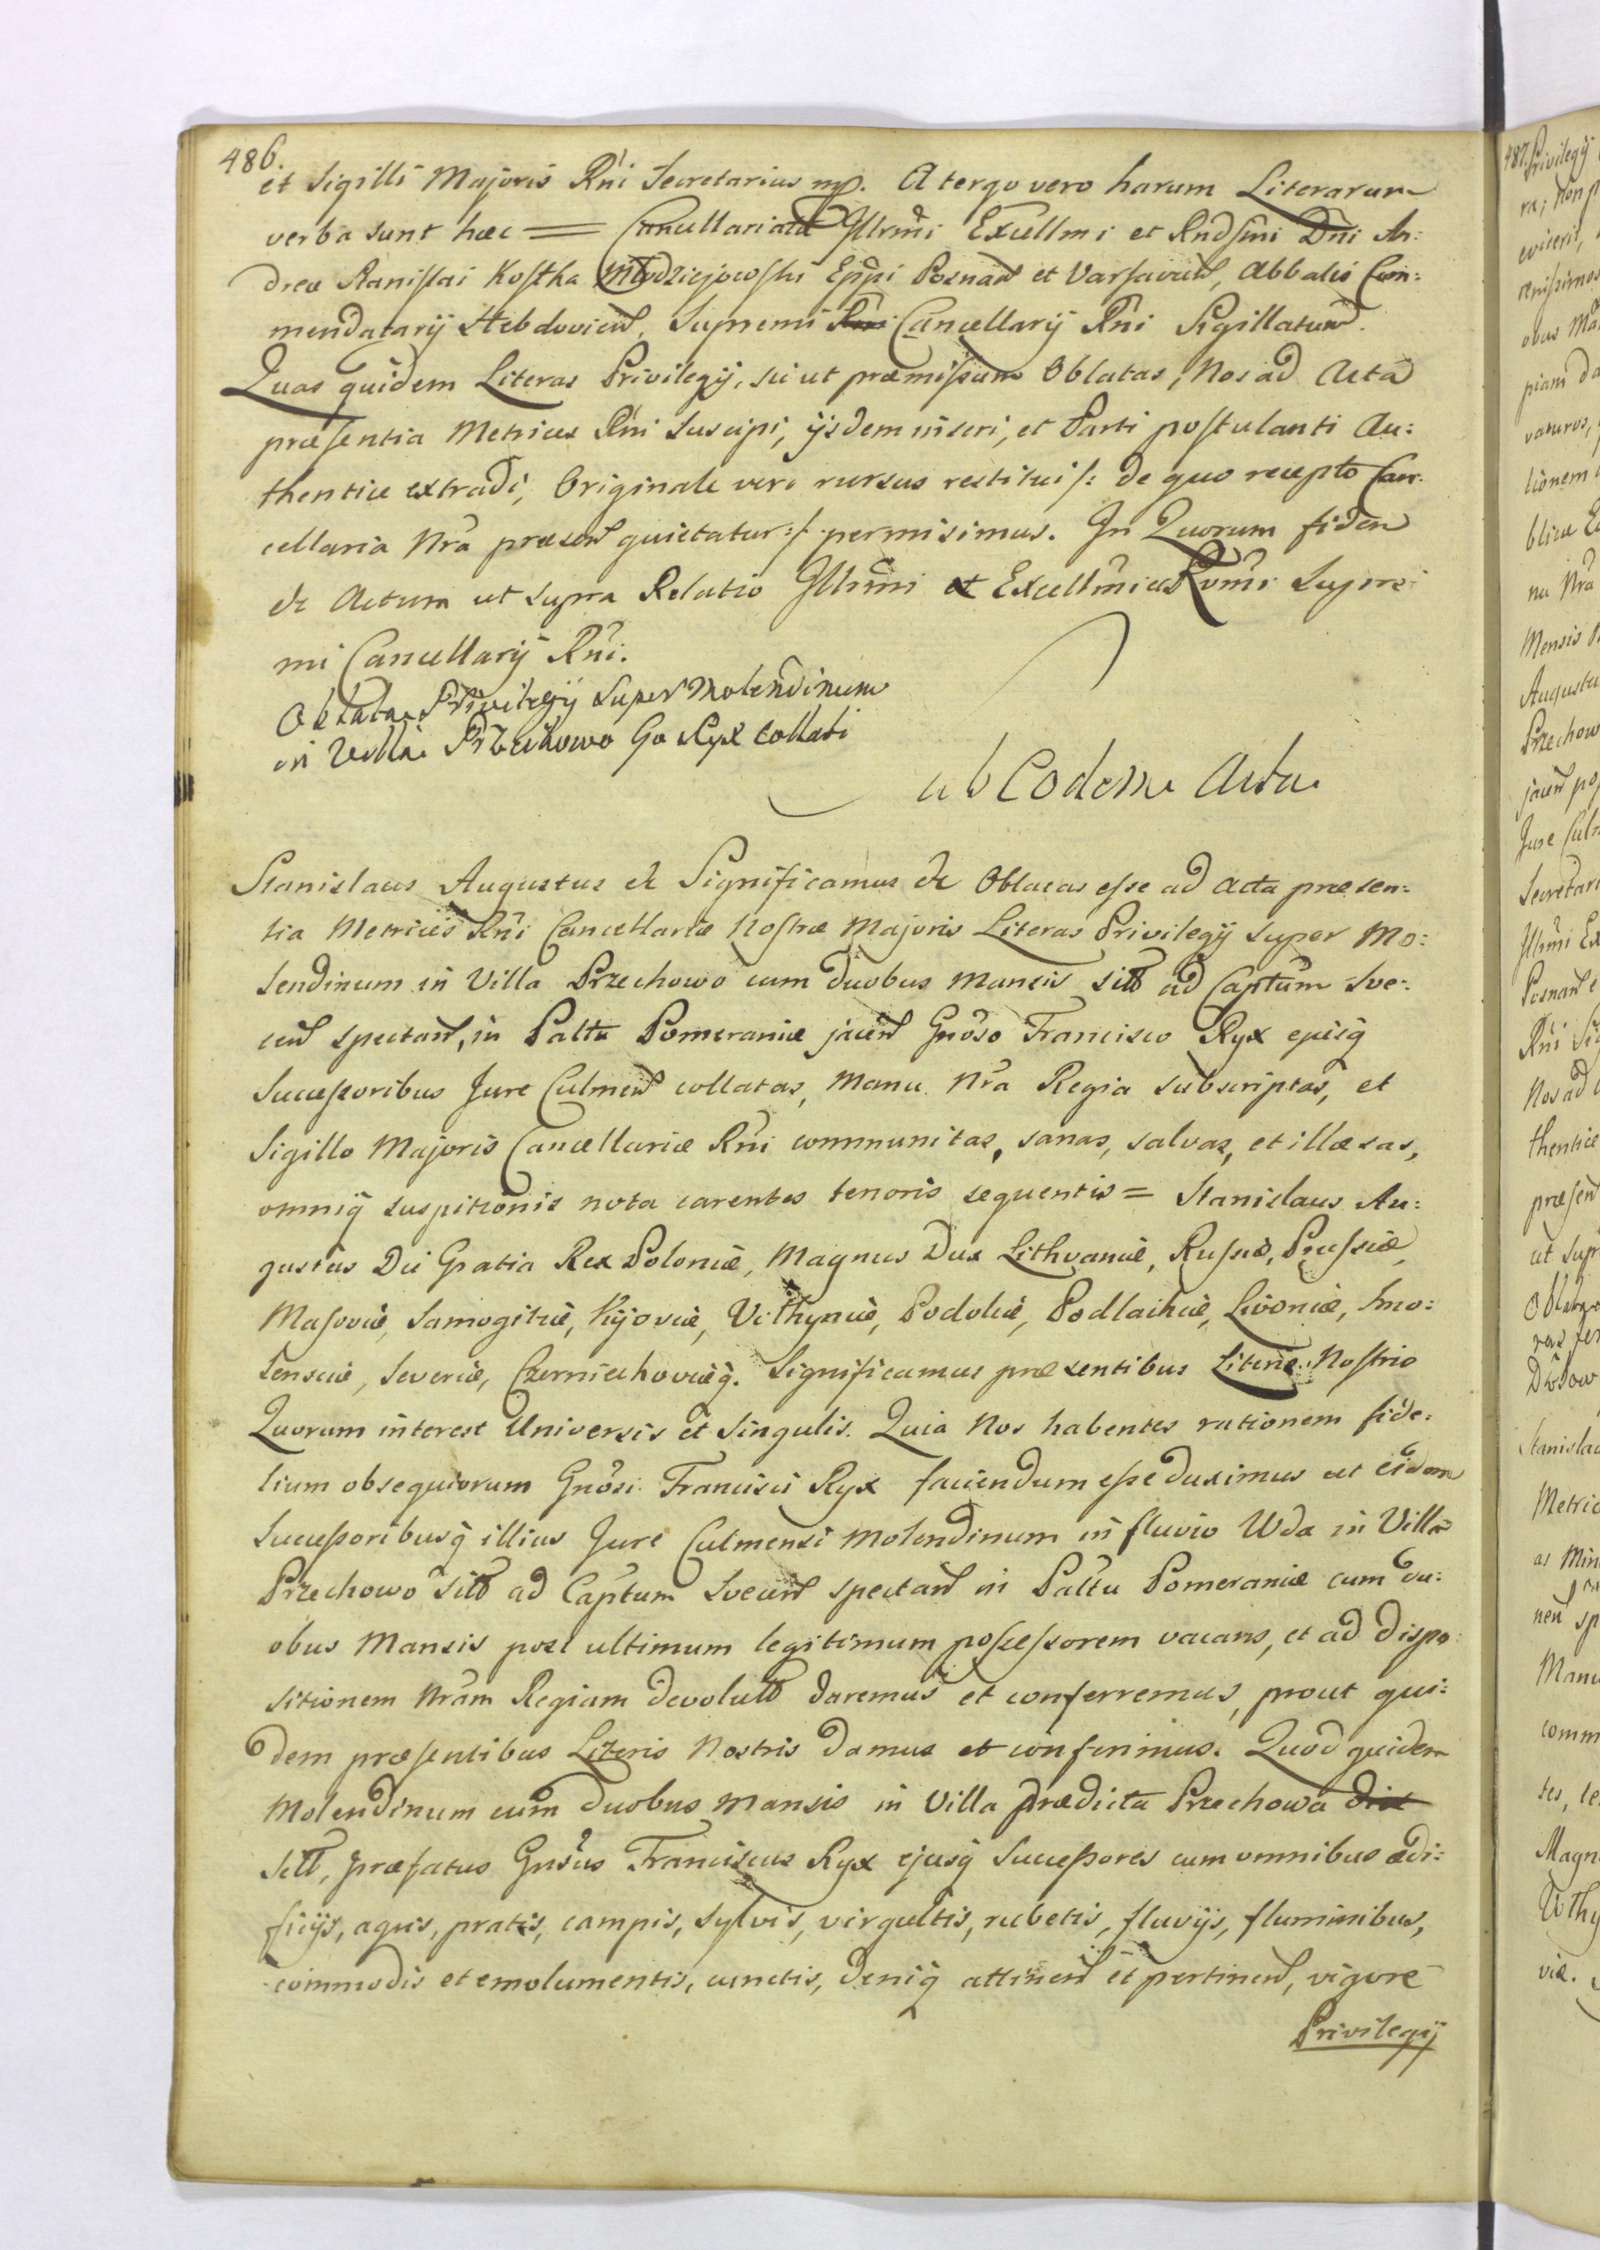 486.
et Sigilli Majoris Rni Secretarius mp. A tergo vero harum Literarum
verba sunt hæc = Cancellariatu Illrmi Excellmi et Rndsmi Dni An:
dreæ Stanislai Kostka Młodziejowski Eppi Posnan et Varsavien, Abbatis Com:
mendatarij Hebdovien, Supremi Cancellarij Rni Sigillatum.
Quas quidem Literas Privilegij, sic ut præmissum Oblatas, Nos ad Acta
præsentia Metrices Rni Suscipi, ijsdem inseri, et Parti postulanti Au:
thentice extradi, Originale vero rursus restitui /: de quo recepto Can:
cellaria Nra præsen quietatur :/ permisimus. In Quorum fidem
&c Actum ut supra Relatio Illrmi et Excellmi ac Rvmi Supre:
mi Cancellarij Rni.
Oblata Privilegij Super Molendinum
in Villa Przechowo Go Ryx Collati
ab Eodem Actu
Stanislaus Augustus &c Significamus &c Oblatas esse ad Acta præsen:
tia Metrices Rni Cancellariæ Nostræ Majoris Literas Privilegij super Mo:
lendinum in Villa Przechowo cum duobus Mansis sitt ad Captum Sve:
cen spectan, in Paltu Pomeraniæ jacen Gnoso Francisco Ryx ejusq
Successoribus Jure Culmen collatas, Manu Nra Regia subscriptas, et
Sigillo Majoris Cancellariæ Rni communitas, sanas, salvas, et illæsas,
omniq suspitionis nota carentes tenoris sequentis = Stanislaus Au:
gustus Dei Gratia Rex Poloniæ, Magnus Dux Lithvaniæ, Russiæ, Prussiæ,
Masoviæ, Samogitiæ, Kijoviæ, Volhyniæ, Podoliæ, Podlachiæ, Livoniæ, Smo:
lensciæ, Severiæ, Czerniechoviæq. Significamus præsentibus Literis Nostris
Quorum interest Universis et Singulis. Quia Nos habentes rationem fide:
lium obsequiorum Gnosi Francisci Ryx faciendum esse duximus ut eidem
Successoribusq illius Jure Culmensi Molendinum in fluvio Wda in Villa
Przechowo sitt ad Captum Svecen spectan in Paltu Pomeraniæ cum du:
obus Mansis post ultimum legitimum possessorem vacans, et ad dispo:
sitionem Nram Regiam devolutt daremus et conferremus, prout qui:
dem præsentibus Literis Nostris damus et conferimus. Quod quidem
Molendinum cum duobus Mansis in Villa prædicta Przechowa
sitt, præfatus Gnosus Franciscus Ryx ejusq Successores cum omnibus ædi:
ficijs, agris, pratis, campis, sylvis, virgultis, rubetis, fluvijs, fluminibus,
commodis et emolumentis, cunctis, deniq attinen et pertinen, vigore
Privilegij